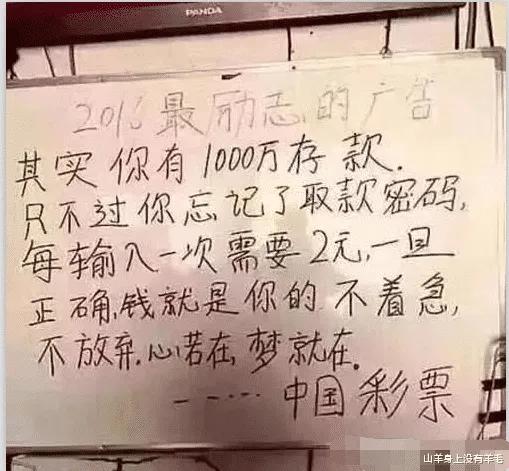 PANDA
2016最励志的广告
其实你有1000万存款.
只不过你忘记了取款密码,
每输入一次需要2元,一旦
正确,钱就是你的 不着急,
不放弃.心若在,梦就在.
-----中国彩票
山羊身上没有羊毛